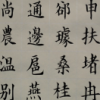 申扶堵冉
郤璩桑桂
通邊扈燕
尚農温别